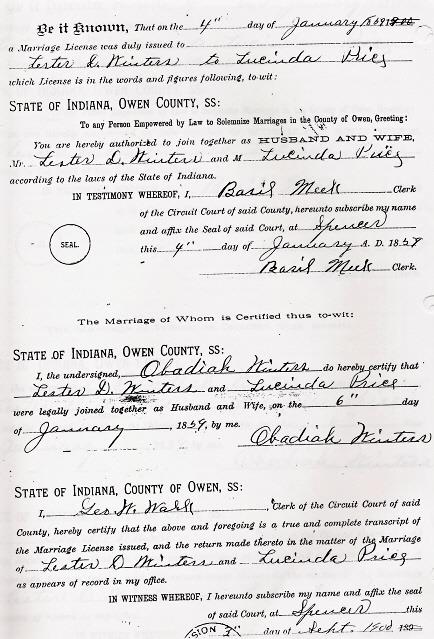 Be it Known, That on the 4" day of January 1859
a Marriage License was duly issued to
Lester D. Winters to Lucinda Price
which License is in the words and figures following, to wit:
STATE OF INDIANA, OWEN COUNTY, SS:
To any Person Empowered by Law to Solemnize Marriages in the County of Owen, Greeting:
You are hereby authorized to join together as HUSBAND AND WIFE,
Mr. Lester D. Winters and M Lucinda Price
according to the laws of the State of Indiana.
IN TESTIMONY WHEREOF, I, Basil Meek Clerk
of the Circuit Court of said County, hereunto subscribe my name
and affix the Seal of said Court, at Spencer
SEAL.
this 4" day of January A. D. 1859
Basil Meek Clerk.
The Marriage of Whom is Certified thus to-wit:
STATE OF INDIANA, OWEN COUNTY, SS:
I, the undersigned, Obadiah Winters do hereby certify that
Lester D. Winters and Lucinda Price
were legally joined together as Husband and Wife, on the 6" day
of January, 1859, by me.
Obadiah Winters
STATE OF INDIANA, COUNTY OF OWEN, SS:
I, Geo. W. Walk, Clerk of the Circuit Court of said
County, hereby certify that the above and foregoing is a true and complete transcript of
the Marriage License issued, and the return made thereto in the matter of the Marriage
of Lester D Winters and Lucinda Price
as appears of record in my office.
IN WITNESS WHEREOF, I hereunto subscribe my name and affix the seal
of said Court, at Spencer this
day of Sept.